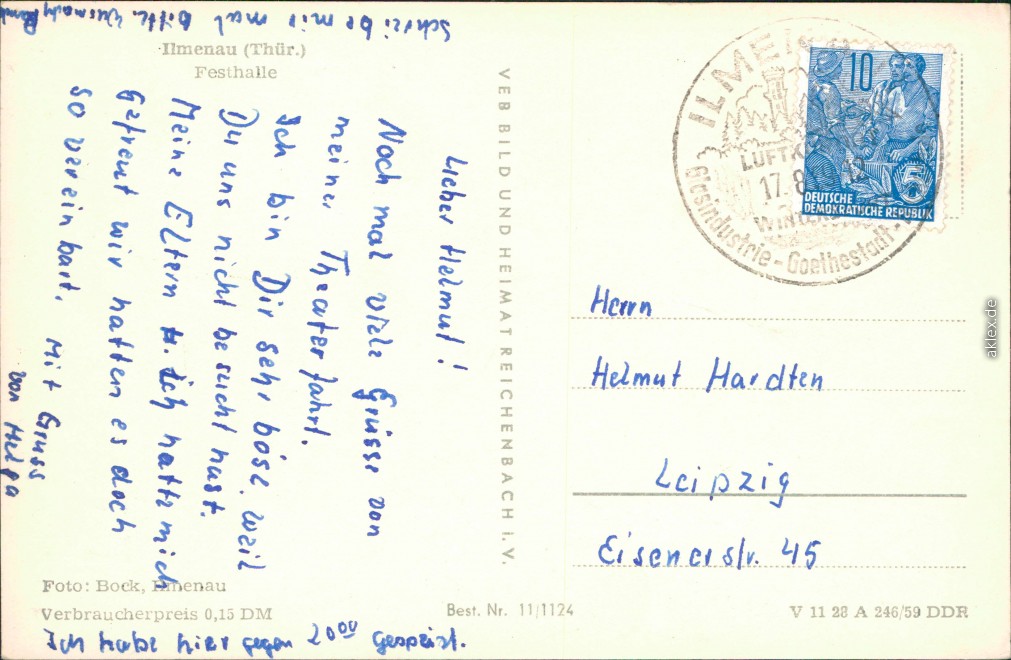 Schreibe mir mal bitte.
Ilmenau (Thür.)
Festhalle
Lieber Helmut!
Noch mal viele Grüsse von
meiner Theaterfahrt.
Ich bin Dir sehr böse, weil
Du uns nicht besucht hast.
Meine Eltern u. ich hatte mich
Gefreut wir hatten es doch
so vereinbart.
Mit Gruss
von Helga
Foto: Bock, Ilmenau
Verbraucherpreis 0,15 DM
Ich habe hier gegen 20⁰⁰ gespeist.
VEB BILD UND HEIMAT REICHENBACH I. V.
Best. Nr. 11/1124
ILMEN
LUFTK
17.8
12
WINTER
Glasindustrie - Goethestadt -
10
5
DEUTSCHE
DEMOKRATISCHE REPUBLIK
Herrn
Helmut Hardten
Leipzig
Eisenerstr. 45
V 11 28 A 246/59 DDR
aklex.de